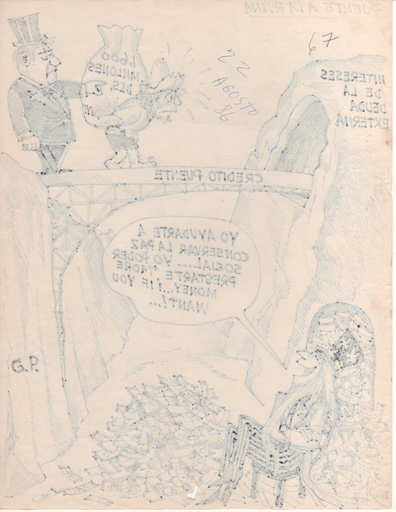 PUENTE A LA RUINA
67
22
AGOSTO
86
1,600
MILLONES
DLS.
INTERESES
DE LA
DEUDA
EXTERNA
CREDITO PUENTE
YO AYUDARTE A
CONSERVAR LA PAZ
SOCIAL.... YO PODER
PRESTARTE "MORE
MONEY...! IF YOU
WANT!...